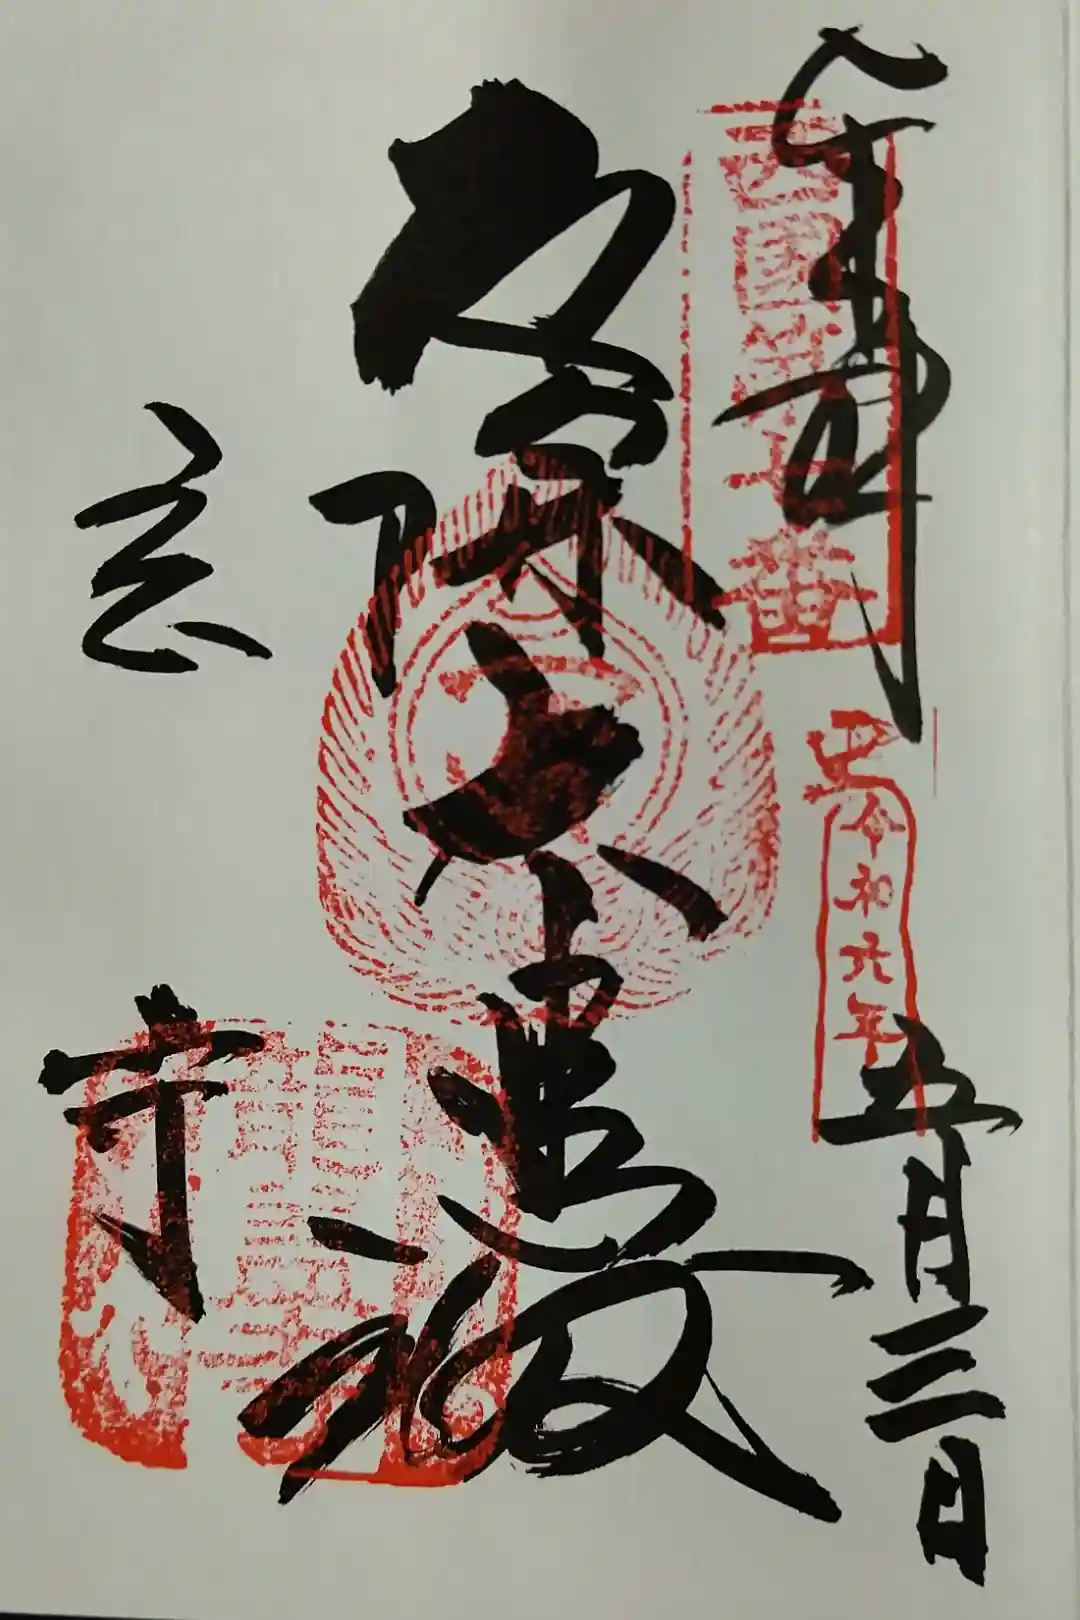 奉拝
西国第七番
令和六年五月三日
厄除大悲殿
寺